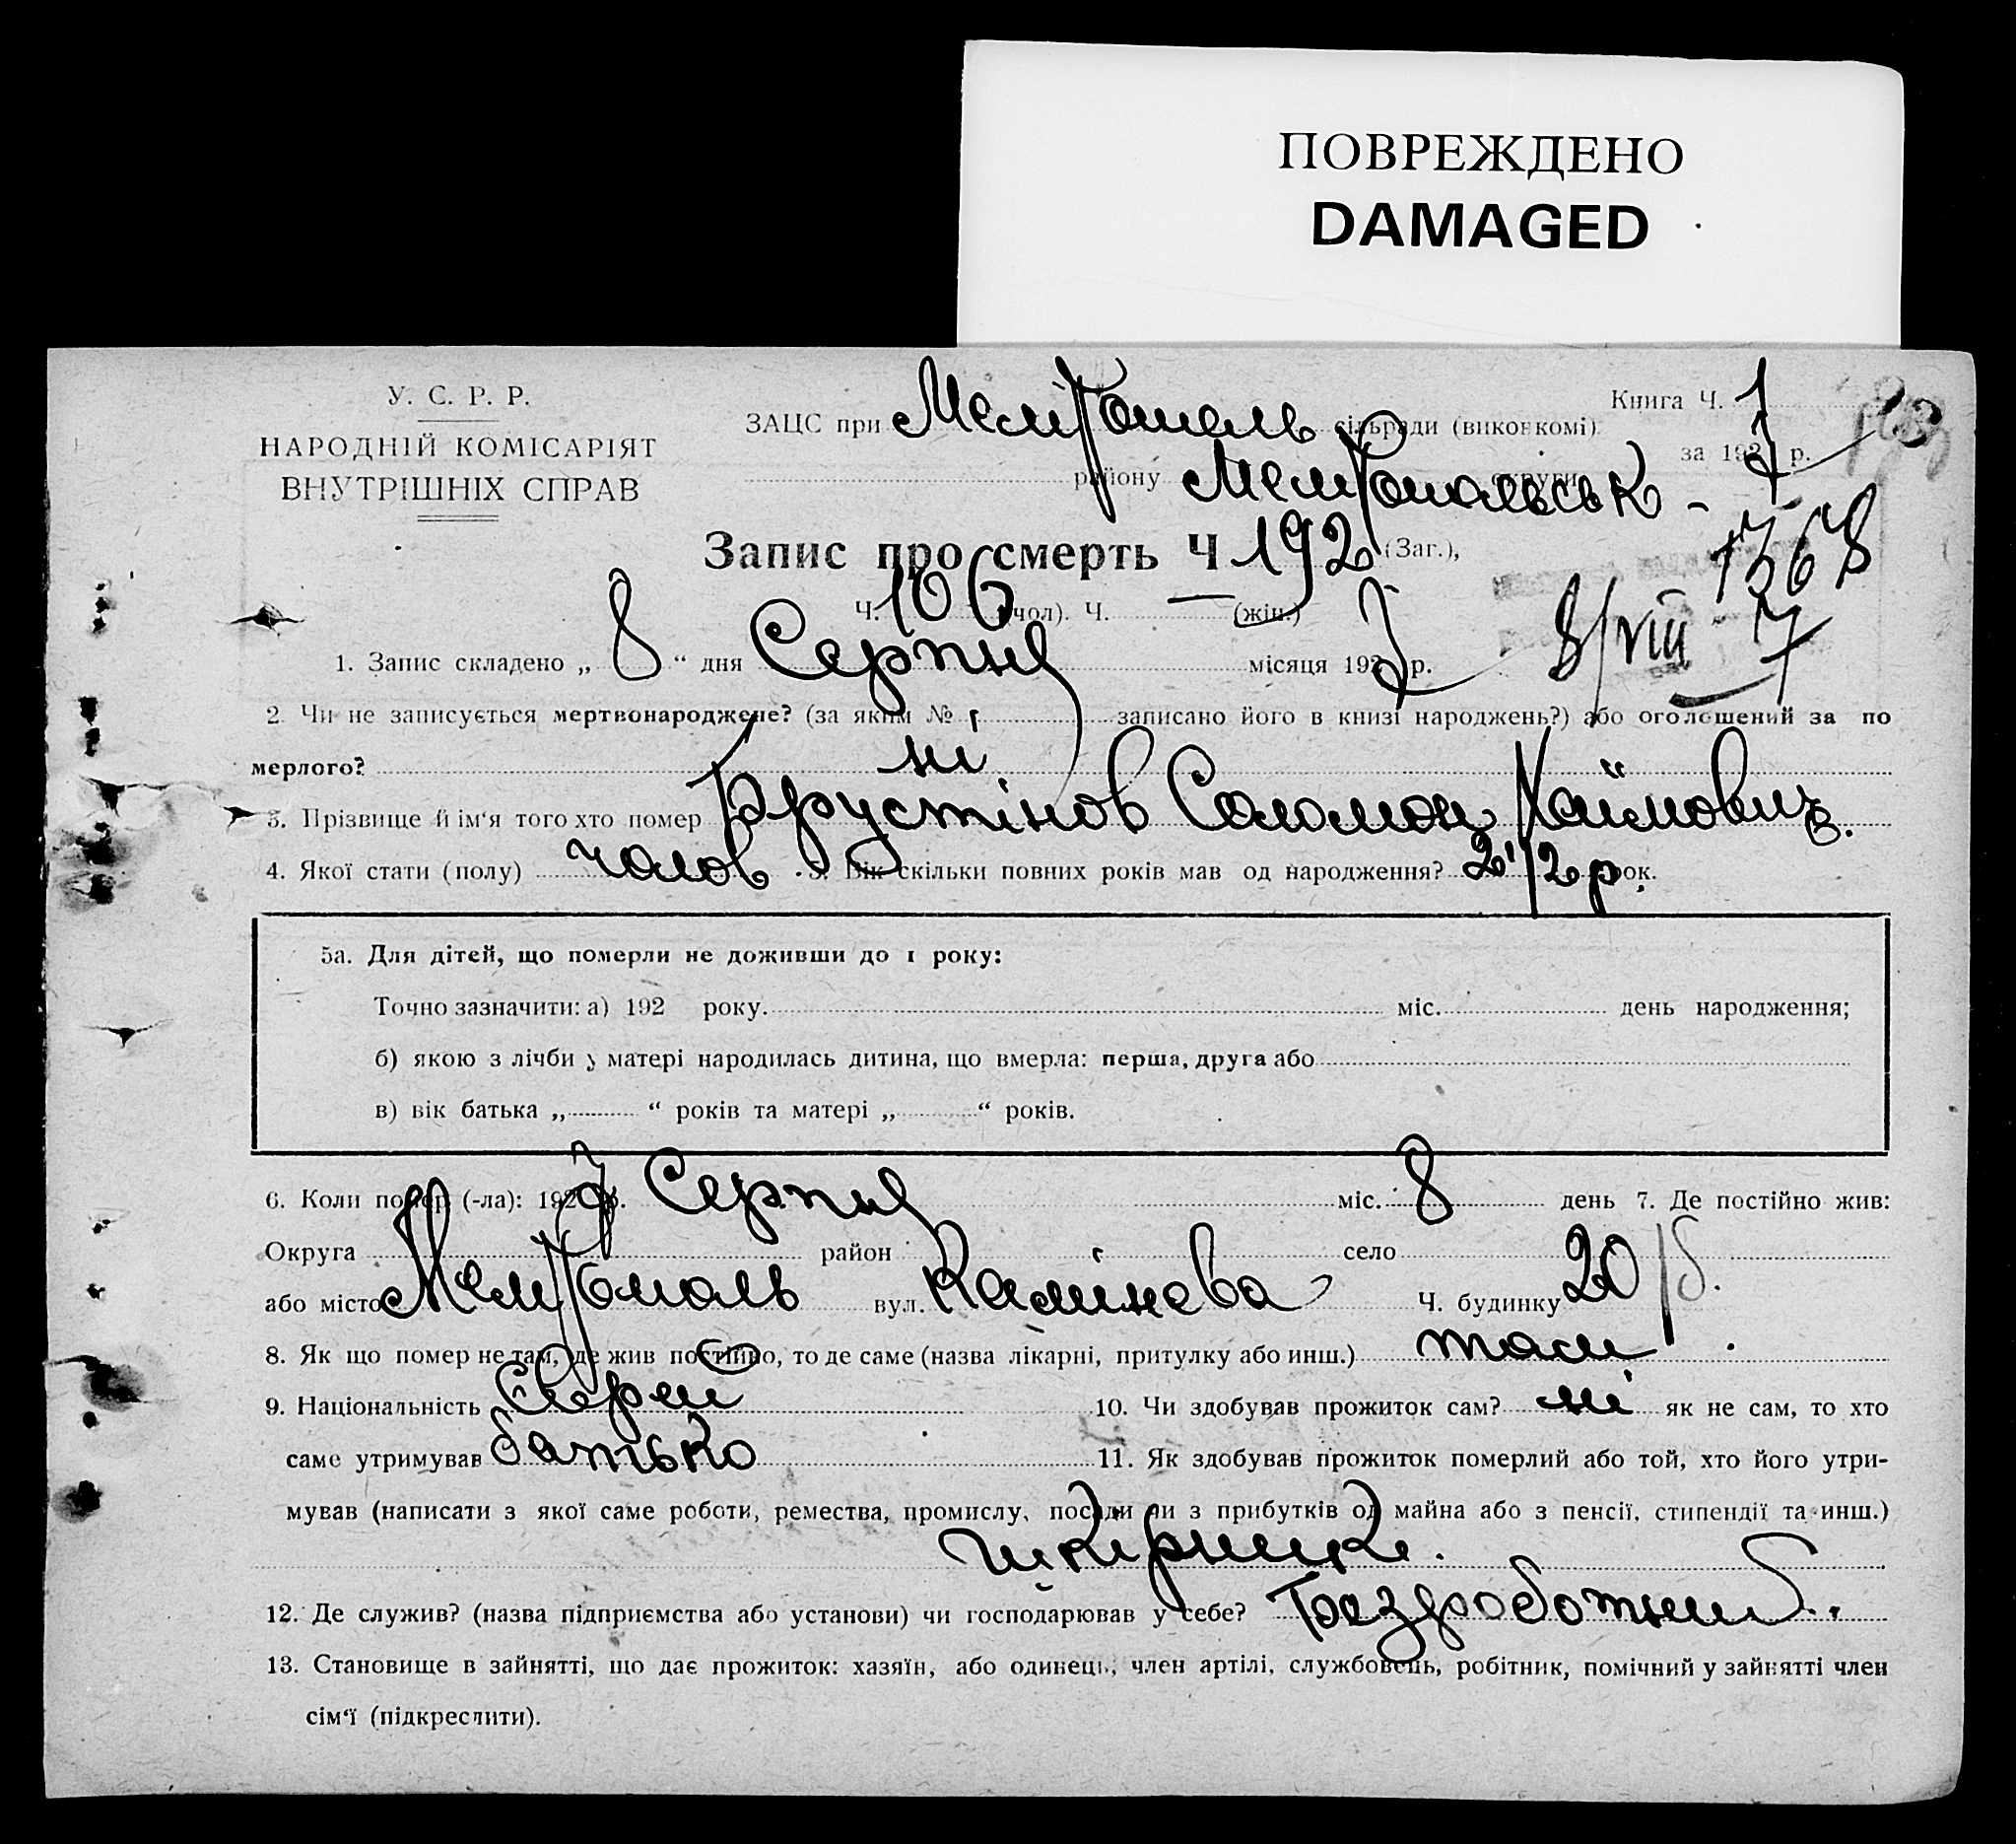 ПОВРЕЖДЕНО
DAMAGED
У. С. Р. Р.
НАРОДНІЙ КОМІСАРІЯТ
ВНУТРІШНІХ СПРАВ
Книга Ч. 7
ЗАЦС при Мелітополь сільради (виконкомі)
за 1927 р.
району Мелітопольськ округи
Запис про смерть Ч 192 (Заг.),
1368
Ч. 106 (чол). Ч. — (жін.)
8/VIII 7
1. Запис складено „ 8 “ дня Серпня місяця 1927 р.
2. Чи не записується мертвонароджене? (за яким № записано його в книзі народжень?) або оголошений за по
мерлого? ні
3. Прізвище й ім‘я того хто помер Брустінов Соломон Хаїмович.
4. Якої стати (полу) чолов 5. Вік скільки повних років мав од народження? 2 1/2 р. рок.
5а. Для дітей, що померли не доживши до 1 року:
Точно зазначити: а) 192 року. міс. день народження;
б) якою з лічби у матері народилась дитина, що вмерла: перша, друга або
в) вік батька „ “ років та матері „ “ років.
6. Коли помер (-ла): 1927 р. Серпня міс. 8 день 7. Де постійно жив:
Округа район село
або місто Мелітополь вул. Калінєва Ч. будинку 20
8. Як що помер не там, де жив постійно, то де саме (назва лікарні, притулку або инш.) там
9. Національність Єврей 10. Чи здобував прожиток сам? ні як не сам, то хто
саме утримував батько 11. Як здобував прожиток померлий або той, хто його утри-
мував (написати з якої саме роботи, ремества, промислу, посади чи з прибутків од майна або з пенсії, стипендії та инш.)
шкірник.
12. Де служив? (назва підприємства або установи) чи господарював у себе? Безработний.
13. Становище в зайнятті, що дає прожиток: хазяїн, або одинець, член артілі, службовець, робітник, помічний у зайнятті член
сім‘ї (підкреслити).